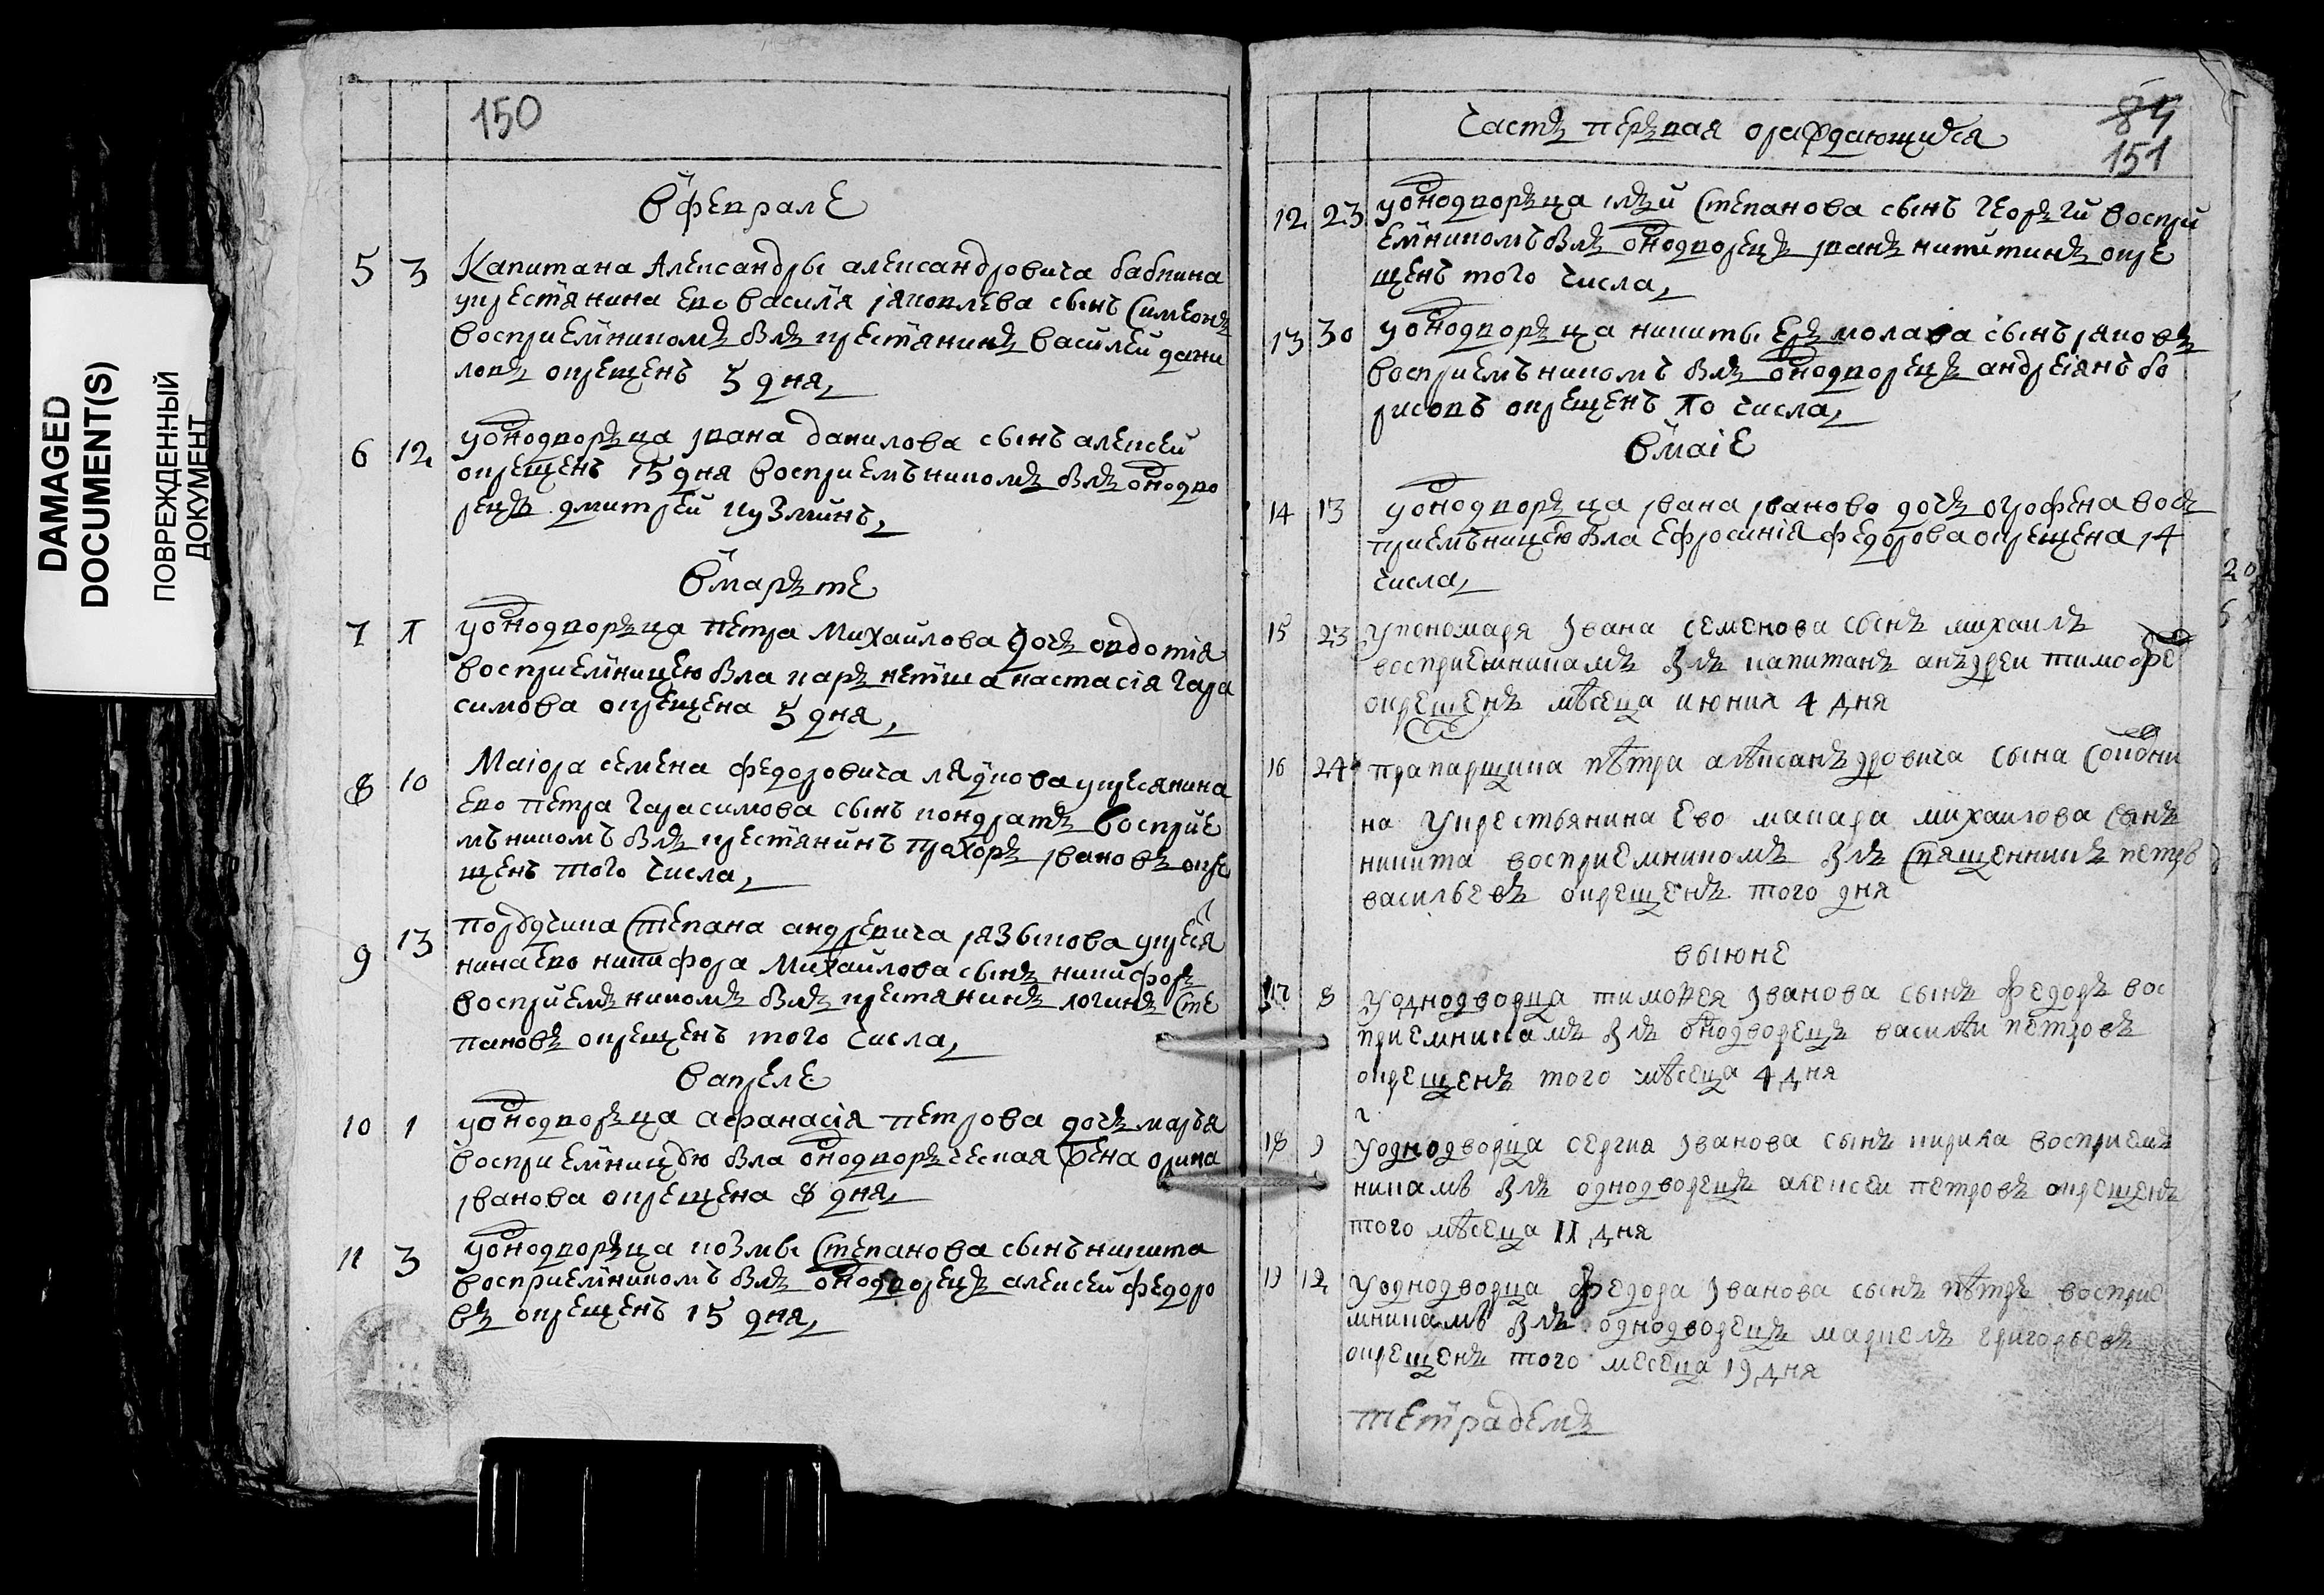 DAMAGED
DOCUMENT(S)
ПОВРЕЖДЕННЫЙ
ДОКУМЕНТ
150
В феврале
5 3 Капитана Александры александровича бабкина
у крестянина ево василя яковлева сынъ Симеонъ
восприемникомъ былъ крестянинъ василей дани
ловъ окрещенъ 5 дня
6 12 у однодворъца ивана данилова сынъ алексей
окрещенъ 15 дня восприемъникомъ былъ однодво
рецъ дмитрей кузминъ
В маръте
7 1 у однодворъца петра Михаилова дочь овдотия
восприемницею была настасия гара
симова окрещена 5 дня
8 10 Маіора семена федоровича у кресянина
ево петра гарасимова сынъ кондратъ восприе
мъникомъ былъ крестянинъ прахоръ ивановъ окре
щенъ того числа
9 13 порудчика Степана андревича языкова у крестя
нина ево никифора Михаилова сынъ никифоръ
восприемъникомъ былъ крестянинъ логинъ Сте
пановъ окрещенъ того числа
в апреле
10 1 у однодворъца афанасія петрова дочь марья
восприемницею была однодворъческая жена орина
иванова окрещена 8 дня
11 3 у однодворъца козмы Степанова сынъ никита
восприемникомъ былъ однодворецъ алексей федоро
въ окрещенъ 15 дня
Часть перъвая о раждающихся
84
151
12 23 у однодворъца Степанова сынъ георъги воспри
емникомъ былъ однодворецъ иванъ никитинъ окре
щенъ того числа
13 30 у однодворъца никиты еръмолава сынъ яковъ
восприемъникомъ былъ однодворецъ андреянъ бо
рисовъ окрещенъ того числа
В маіе
14 13 у однодворъца ивана иваново дочь ографена вос
приемъницею была ефросинія федорова окрещена 14
числа
15 23 у пономаря Ивана семенова сынъ михаилъ
восприемникамъ былъ капитанъ анъдреи тимофе
окрещенъ мѣсеца июния 4 дня
16 24 прапарщика пѣтра алѣксанъдровича сына
на у крестьянина ево макара михаилова сынъ
никита восприемникомъ былъ священникъ петръ
васильевъ окрещенъ того дня
в ыюне
17 8 у однодворца тимофея Иванова сынъ федоръ вос
приемникамъ былъ однодворецъ василѣи петровъ
окрещенъ того мѣсеца 4 дня
18 9 у однодворца сергия Иванова сынъ кирила восприем
никамъ былъ однодворецъ алексеи петровъ окрещенъ
того мѣсеца 11 дня
19 12 у однодворца федора Иванова сынъ пѣтръ восприе
мникамъ былъ однодворецъ маркелъ григорьевъ
окрещенъ того месеца 19 дня